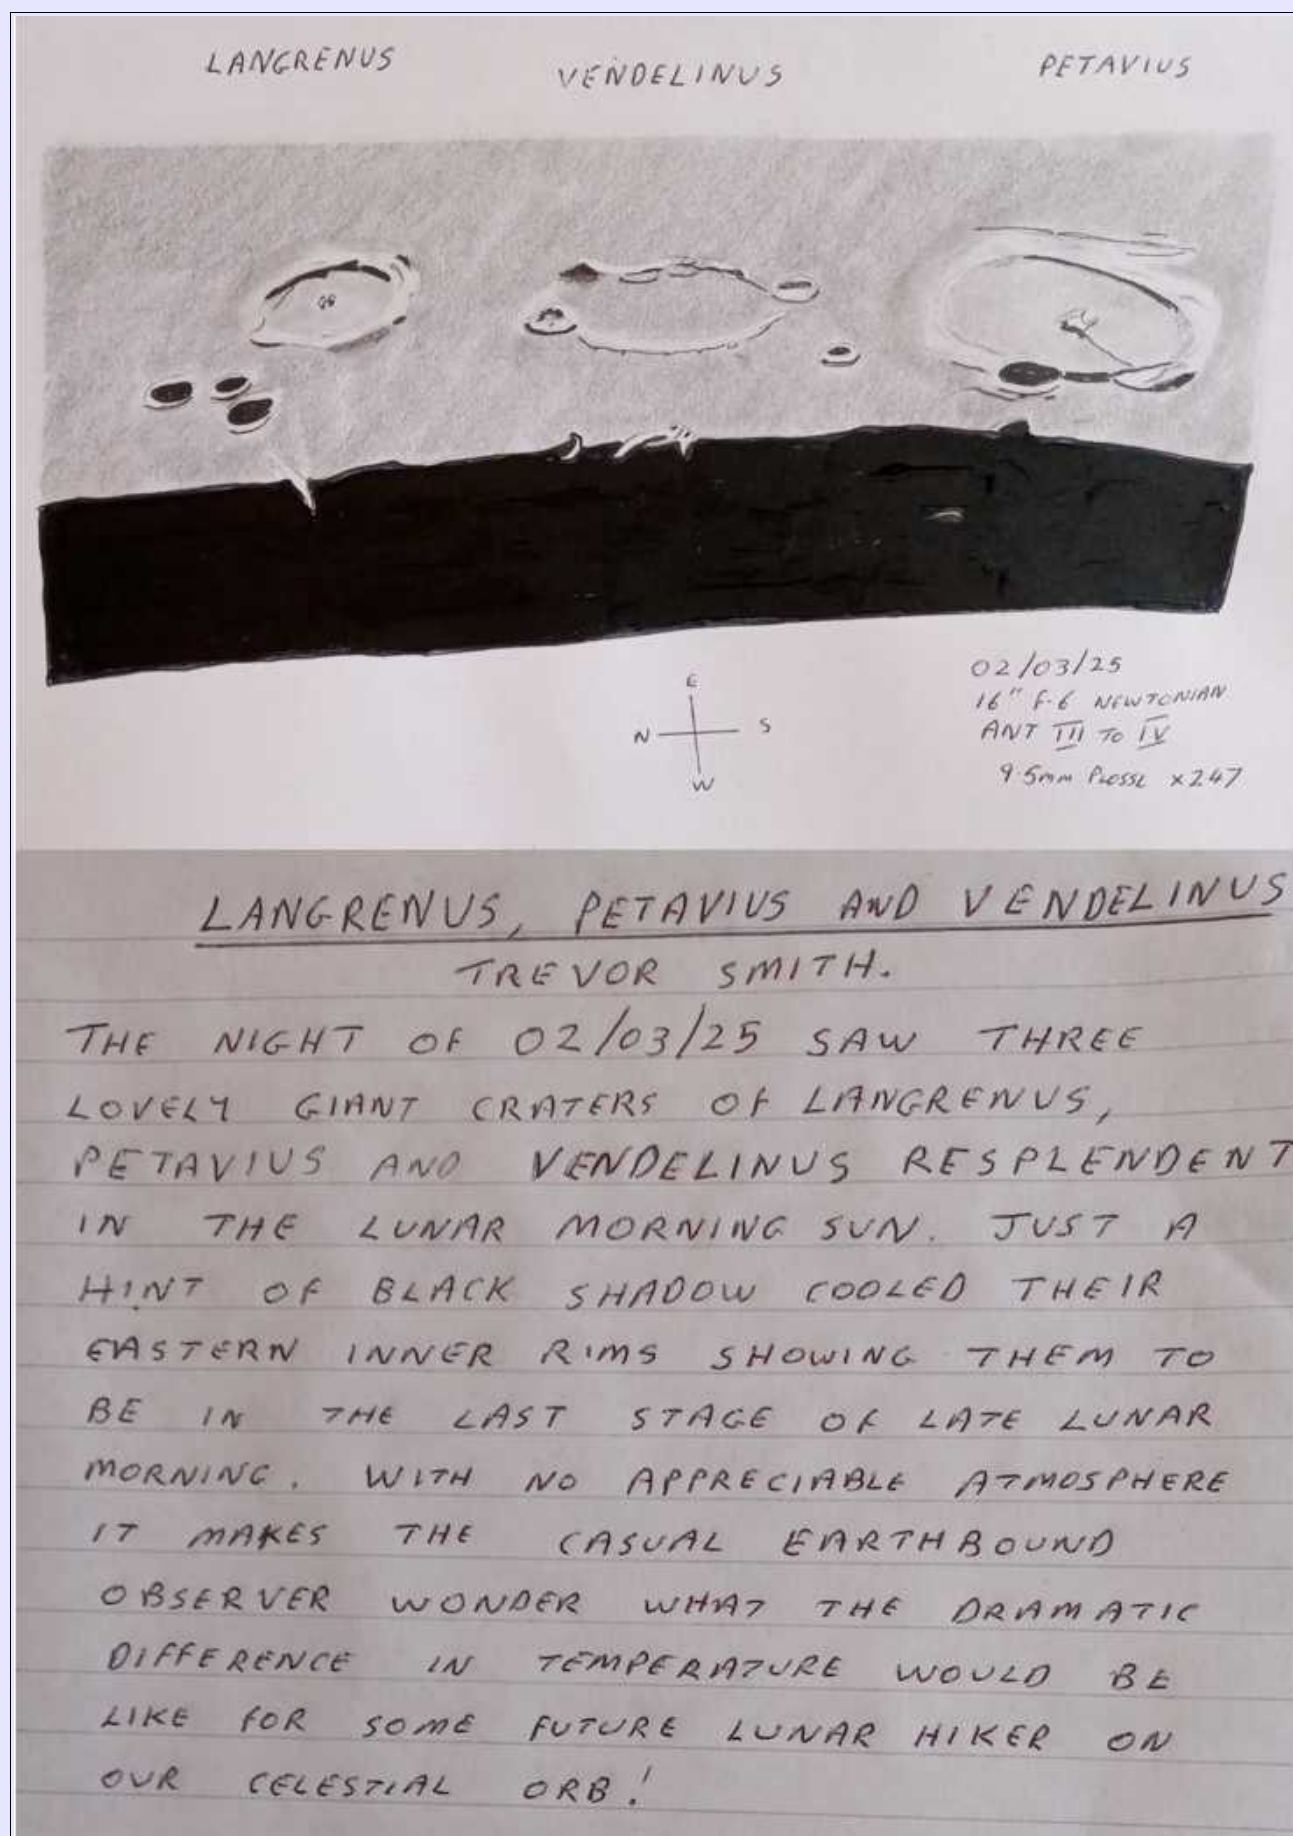 LANGRENUS VENDELINUS PETAVIUS
E
N S
W
02/03/25
16" F-6 NEWTONIAN
ANT III TO IV
9.5mm PLOSSL x247
LANGRENUS, PETAVIUS AND VENDELINUS
TREVOR SMITH.
THE NIGHT OF 02/03/25 SAW THREE
LOVELY GIANT CRATERS OF LANGRENUS,
PETAVIUS AND VENDELINUS RESPLENDENT
IN THE LUNAR MORNING SUN. JUST A
HINT OF BLACK SHADOW COOLED THEIR
EASTERN INNER RIMS SHOWING THEM TO
BE IN THE LAST STAGE OF LATE LUNAR
MORNING. WITH NO APPRECIABLE ATMOSPHERE
IT MAKES THE CASUAL EARTHBOUND
OBSERVER WONDER WHAT THE DRAMATIC
DIFFERENCE IN TEMPERATURE WOULD BE
LIKE FOR SOME FUTURE LUNAR HIKER ON
OUR CELESTIAL ORB!